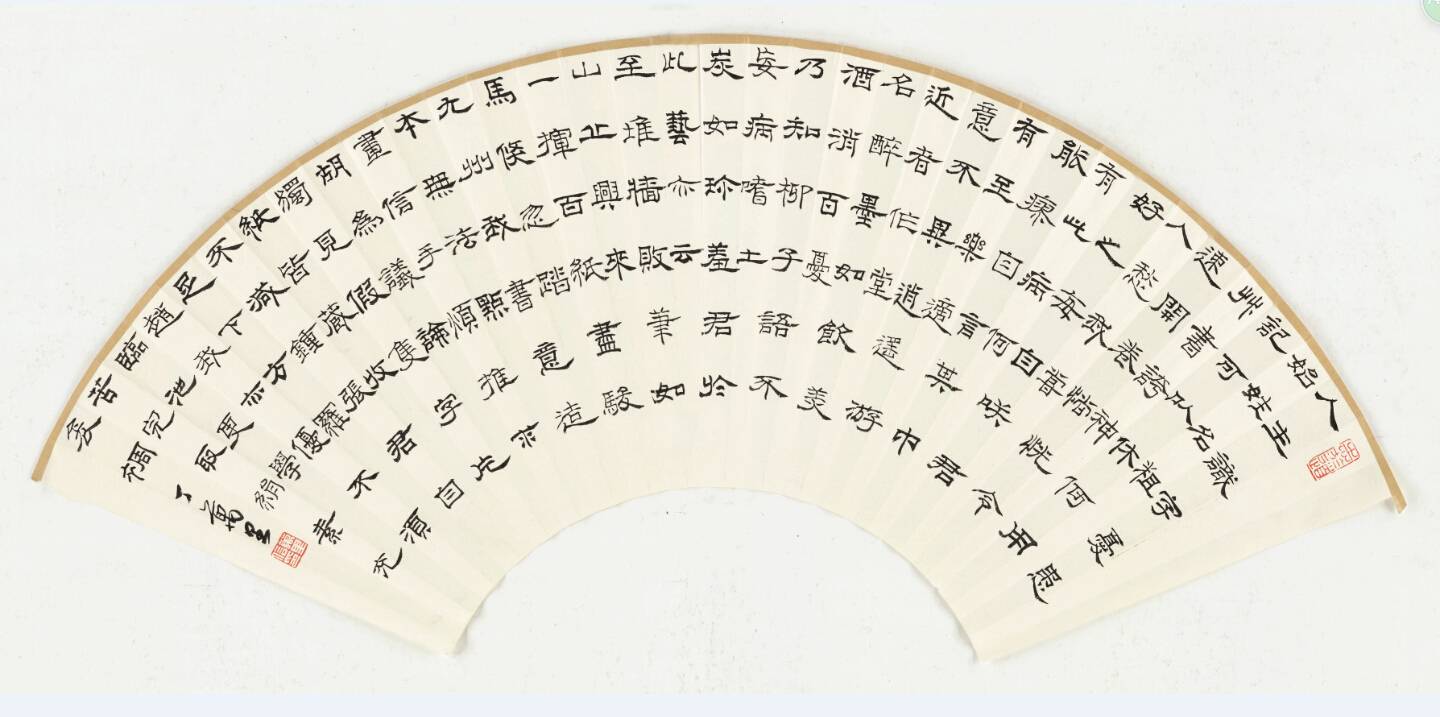 人生識字憂患
始姓名粗
記可以休何用
草書誇神
速開卷惝怳令
人愁我嘗
好之每自笑君
有此病何
能瘳自言其中
有至樂適
意不異逍遙游
近者作堂
名醉墨如飲美
酒消百憂
乃知柳子語不
妄病嗜土
炭如珍羞君於
此藝亦云
至堆牆敗筆如
山丘興來
一揮百紙盡駿
馬倏忽踏
九州我書意造
本無法點
畫信手煩推求
胡為議論
獨見假隻字片
紙皆藏收
不減鍾張君自
足下方羅
趙我亦優不須
臨池更學
苦完取絹素充
衾裯